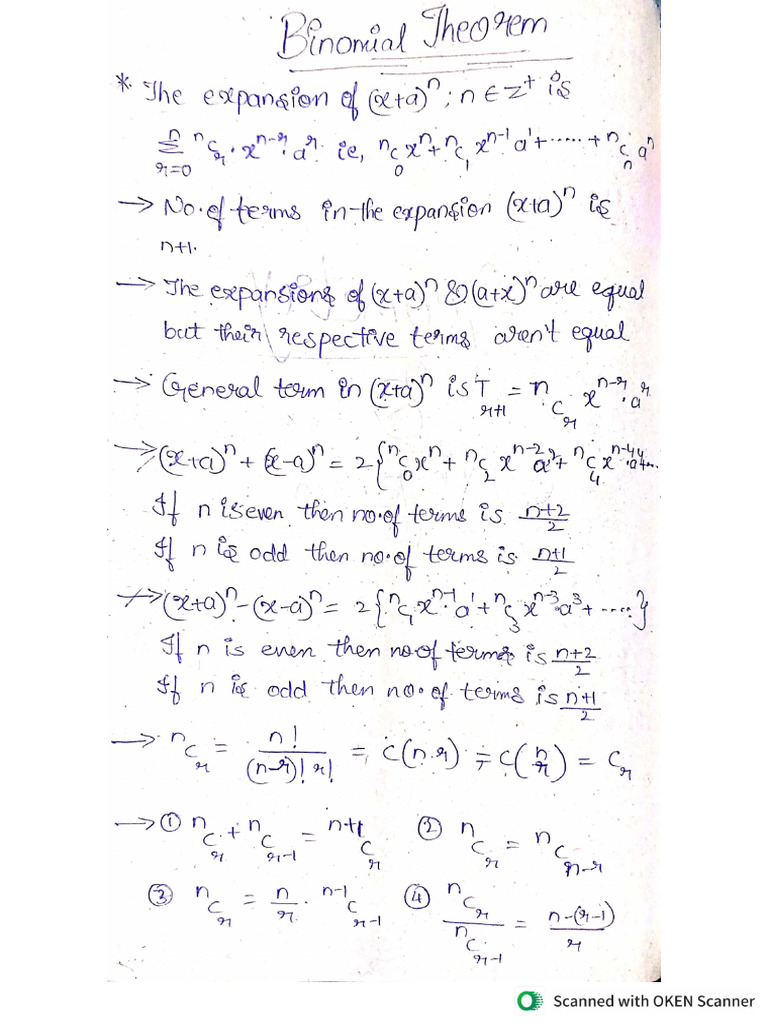 Binomial Theorem
* The expansion of (x+a)ⁿ ; n ∈ Z⁺ is
ⁿΣᵣ₌₀ ⁿCᵣ · xⁿ⁻ʳ · aʳ ie, ⁿC₀ xⁿ + ⁿC₁ xⁿ⁻¹ a¹ + ...... + ⁿCₙ aⁿ
→ No. of terms in the expansion (x+a)ⁿ is
n+1.
→ The expansions of (x+a)ⁿ & (a+x)ⁿ are equal
but their respective terms aren't equal
→ General term in (x+a)ⁿ is Tᵣ₊₁ = ⁿCᵣ xⁿ⁻ʳ · aʳ
→ (x+a)ⁿ + (x-a)ⁿ = 2{ⁿC₀ xⁿ + ⁿC₂ xⁿ⁻² a² + ⁿC₄ xⁿ⁻⁴ · a⁴ + ...
If n is even then no. of terms is (n+2)/2
If n is odd then no. of terms is (n+1)/2
→ (x+a)ⁿ - (x-a)ⁿ = 2{ⁿC₁ xⁿ⁻¹ · a¹ + ⁿC₃ xⁿ⁻³ · a³ + .....}
If n is even then no of terms is (n+2)/2
If n is odd then no. of terms is (n+1)/2
→ ⁿCᵣ = n!/((n-r)! r!) = C(n.r) = C(n/r) = Cᵣ
→ ① ⁿCᵣ + ⁿCᵣ₋₁ = ⁿ⁺¹Cᵣ ② ⁿCᵣ = ⁿCₙ₋ᵣ
③ ⁿCᵣ = n/r · ⁿ⁻¹Cᵣ₋₁ ④ ⁿCᵣ/ⁿCᵣ₋₁ = (n-(r-1))/r
Scanned with OKEN Scanner